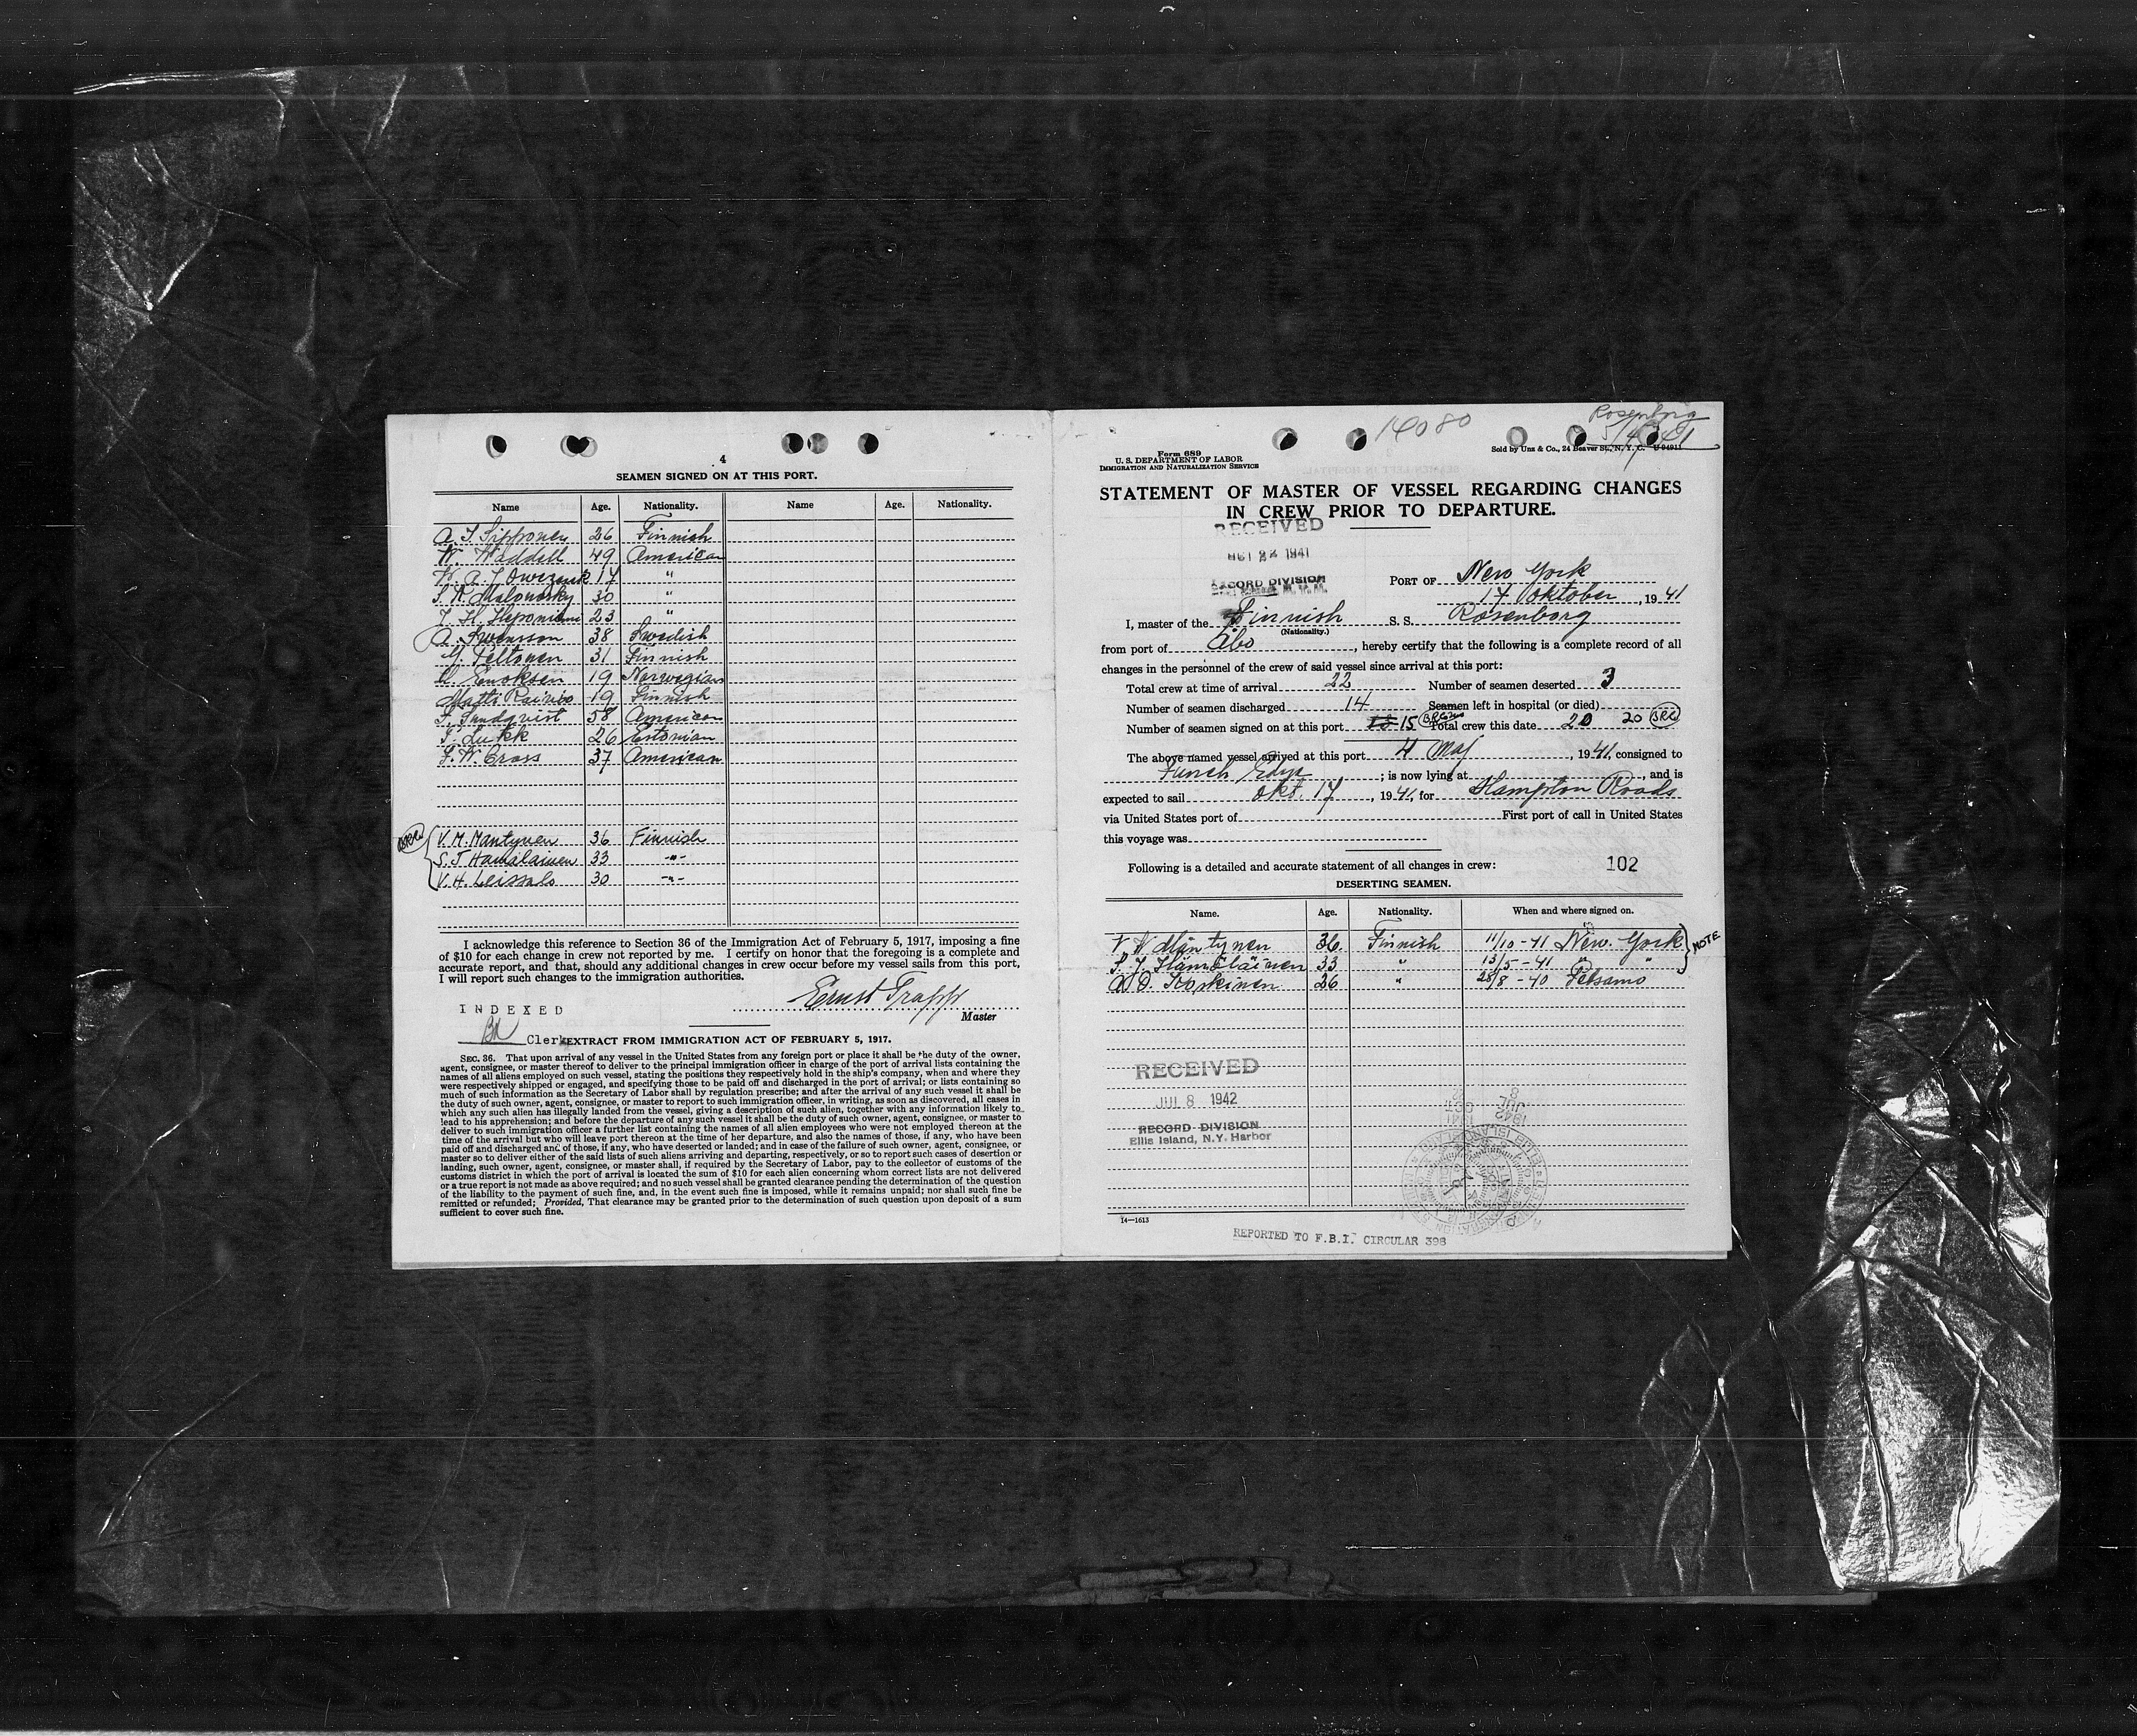 4
SEAMEN SIGNED ON AT THIS PORT.
Name Age. Nationality. Name Age. Nationality.
A. J. Sipponen 26 Finnish
W. Waddell 49 American
W. A. J. 17 "
S. R. Malonosky 30 "
J. H. Heponiemi 23 "
A. Swensson 38 Swedish
Y. Peltonen 31 Finnish
Enoksen 19 Norwegian
Matti 19 Finnish
F. Sundqvist 58 American
F. Lukk 26 Estonian
F. W. Cross 37 American
V. M. Mantynen 36 Finnish
S. J. Hamalainen 33 -"-
V. H. Leissalo 30 -"-
I acknowledge this reference to Section 36 of the Immigration Act of February 5, 1917, imposing a fine
of $10 for each change in crew not reported by me. I certify on honor that the foregoing is a complete and
accurate report, and that, should any additional changes in crew occur before my vessel sails from this port,
I will report such changes to the immigration authorities.
Ernst Trapp
INDEXED
Master
Clerk
EXTRACT FROM IMMIGRATION ACT OF FEBRUARY 5, 1917.
SEC. 36. That upon arrival of any vessel in the United States from any foreign port or place it shall be the duty of the owner,
agent, consignee, or master thereof to deliver to the principal immigration officer in charge of the port of arrival lists containing the
names of all aliens employed on such vessel, stating the positions they respectively hold in the ship's company, when and where they
were respectively shipped or engaged, and specifying those to be paid off and discharged in the port of arrival; or lists containing so
much of such information as the Secretary of Labor shall by regulation prescribe; and after the arrival of any such vessel it shall be
the duty of such owner, agent, consignee, or master to report to such immigration officer, in writing, as soon as discovered, all cases in
which any such alien has illegally landed from the vessel, giving a description of such alien, together with any information likely to
lead to his apprehension; and before the departure of any such vessel it shall be the duty of such owner, agent, consignee, or master to
deliver to such immigration officer a further list containing the names of all alien employees who were not employed thereon at the
time of the arrival but who will leave port thereon at the time of her departure, and also the names of those, if any, who have been
paid off and discharged and of those, if any, who have deserted or landed; and in case of the failure of such owner, agent, consignee, or
master so to deliver either of the said lists of such aliens arriving and departing, respectively, or so to report such cases of desertion or
landing, such owner, agent, consignee, or master shall, if required by the Secretary of Labor, pay to the collector of customs of the
customs district in which the port of arrival is located the sum of $10 for each alien concerning whom correct lists are not delivered
or a true report is not made as above required; and no such vessel shall be granted clearance pending the determination of the question
of the liability to the payment of such fine, and, in the event such fine is imposed, while it remains unpaid; nor shall such fine be
remitted or refunded; Provided, That clearance may be granted prior to the determination of such question upon deposit of a sum
sufficient to cover such fine.
Rosenborg
16080
Form 689
U. S. DEPARTMENT OF LABOR
IMMIGRATION AND NATURALIZATION SERVICE
Sold by Unz & Co., 24 Beaver St., N. Y. C.
STATEMENT OF MASTER OF VESSEL REGARDING CHANGES
IN CREW PRIOR TO DEPARTURE.
RECEIVED
OCT 22 1941
RECORD DIVISION
PORT OF New York
17 Oktober, 1941
I, master of the Finnish S. S. Rosenborg
(Nationality.)
from port of Åbo, hereby certify that the following is a complete record of all
changes in the personnel of the crew of said vessel since arrival at this port:
Total crew at time of arrival 22 Number of seamen deserted 3
Number of seamen discharged 14 Seamen left in hospital (or died)
Number of seamen signed on at this port 15 Total crew this date 20 20 BRC
The above named vessel arrived at this port 4 Maj, 1941, consigned to
Funch Edye; is now lying at , and is
expected to sail Okt. 17, 1941, for Hampton Roads
via United States port of First port of call in United States
this voyage was
Following is a detailed and accurate statement of all changes in crew: 102
DESERTING SEAMEN.
Name. Age. Nationality. When and where signed on.
V. M. Mäntynen 36 Finnish 11/10-41 New York
S. J. Hämäläinen 33 " 13/5-41 " "
NOTE
O. Koskinen 26 " 28/8-40 Petsamo
RECEIVED
JUL 8 1942
RECORD DIVISION
Ellis Island, N.Y. Harbor
14—1613
REPORTED TO F.B.I. CIRCULAR 398